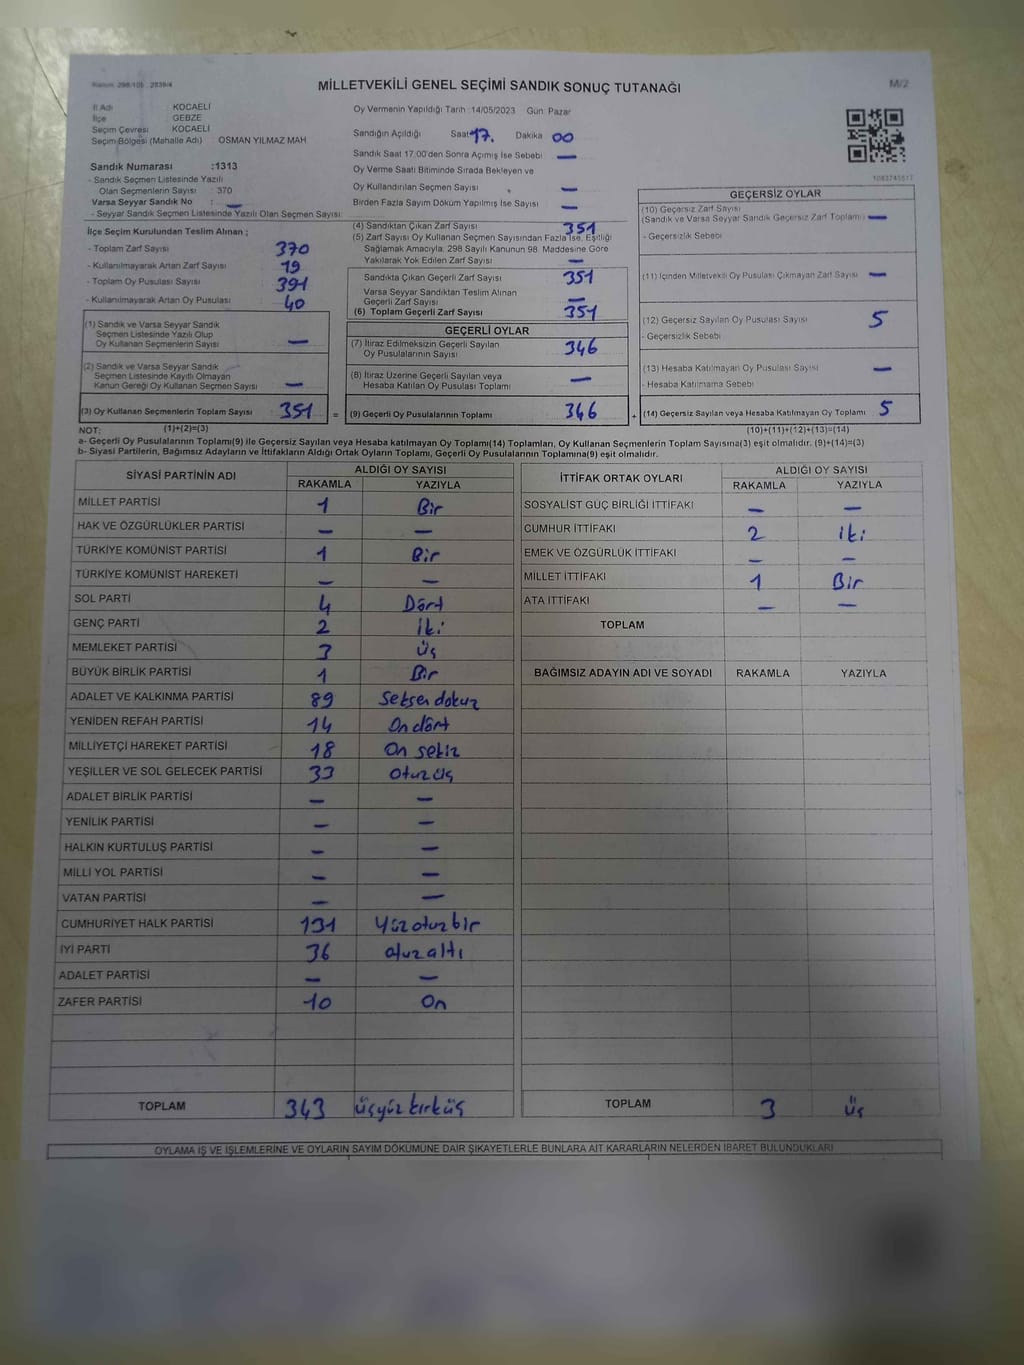 MİLLETVEKİLİ GENEL SEÇİMİ SANDIK SONUÇ TUTANAĞI
M/2
İl Adı KOCAELİ
İlçe GEBZE
Seçim Çevresi KOCAELİ
Seçim Bölgesi (Mahalle Adı) OSMAN YILMAZ MAH
Sandık Numarası :1313
- Sandık Seçmen Listesinde Yazılı
Olan Seçmenlerin Sayısı : 370
Varsa Seyyar Sandık No : —
- Seyyar Sandık Seçmen Listesinde Yazılı Olan Seçmen Sayısı:
İlçe Seçim Kurulundan Teslim Alınan ;
- Toplam Zarf Sayısı 370
- Kullanılmayarak Artan Zarf Sayısı 19
- Toplam Oy Pusulası Sayısı 391
- Kullanılmayarak Artan Oy Pusulası 40
(1) Sandık ve Varsa Seyyar Sandık
Seçmen Listesinde Yazılı Olup
Oy Kullanan Seçmenlerin Sayısı —
(2) Sandık ve Varsa Seyyar Sandık
Seçmen Listesinde Kayıtlı Olmayan
Kanun Gereği Oy Kullanan Seçmen Sayısı —
(3) Oy Kullanan Seçmenlerin Toplam Sayısı 351 =
Oy Vermenin Yapıldığı Tarih :14/05/2023 Gün: Pazar
Sandığın Açıldığı Saat 17. Dakika 00
Sandık Saat 17:00'den Sonra Açımış İse Sebebi —
Oy Verme Saati Bitiminde Sırada Bekleyen ve
Oy Kullandırılan Seçmen Sayısı —
Birden Fazla Sayım Döküm Yapılmış İse Sayısı —
(4) Sandıktan Çıkan Zarf Sayısı 351
(5) Zarf Sayısı Oy Kullanan Seçmen Sayısından Fazla İse, Eşitliği
Sağlamak Amacıyla, 298 Sayılı Kanunun 98. Maddesine Göre
Yakılarak Yok Edilen Zarf Sayısı —
Sandıkta Çıkan Geçerli Zarf Sayısı 351
Varsa Seyyar Sandıktan Teslim Alınan
Geçerli Zarf Sayısı —
(6) Toplam Geçerli Zarf Sayısı 351
GEÇERLİ OYLAR
(7) İtiraz Edilmeksizin Geçerli Sayılan
Oy Pusulalarının Sayısı 346
(8) İtiraz Üzerine Geçerli Sayılan veya
Hesaba Katılan Oy Pusulası Toplamı —
(9) Geçerli Oy Pusulalarının Toplamı 346 +
GEÇERSİZ OYLAR
(10) Geçersiz Zarf Sayısı
(Sandık ve Varsa Seyyar Sandık Geçersiz Zarf Toplamı) —
- Geçersizlik Sebebi
(11) İçinden Milletvekili Oy Pusulası Çıkmayan Zarf Sayısı —
(12) Geçersiz Sayılan Oy Pusulası Sayısı 5
- Geçersizlik Sebebi
(13) Hesaba Katılmayan Oy Pusulası Sayısı —
- Hesaba Katılmama Sebebi
(14) Geçersiz Sayılan veya Hesaba Katılmayan Oy Toplamı 5
NOT: (1)+(2)=(3) (10)+(11)+(12)+(13)=(14)
a- Geçerli Oy Pusulalarının Toplamı(9) ile Geçersiz Sayılan veya Hesaba katılmayan Oy Toplamı(14) Toplamları, Oy Kullanan Seçmenlerin Toplam Sayısına(3) eşit olmalıdır. (9)+(14)=(3)
b- Siyasi Partilerin, Bağımsız Adayların ve İttifakların Aldığı Ortak Oyların Toplamı, Geçerli Oy Pusulalarının Toplamına(9) eşit olmalıdır.
SİYASİ PARTİNİN ADI ALDIĞI OY SAYISI
RAKAMLA YAZIYLA
MİLLET PARTİSİ 1 Bir
HAK VE ÖZGÜRLÜKLER PARTİSİ — —
TÜRKİYE KOMÜNİST PARTİSİ 1 Bir
TÜRKİYE KOMÜNİST HAREKETİ — —
SOL PARTİ 4 Dört
GENÇ PARTİ 2 iki
MEMLEKET PARTİSİ 3 üç
BÜYÜK BİRLİK PARTİSİ 1 Bir
ADALET VE KALKINMA PARTİSİ 89 Seksen dokuz
YENİDEN REFAH PARTİSİ 14 On dört
MİLLİYETÇİ HAREKET PARTİSİ 18 On sekiz
YEŞİLLER VE SOL GELECEK PARTİSİ 33 otuz üç
ADALET BİRLİK PARTİSİ — —
YENİLİK PARTİSİ — —
HALKIN KURTULUŞ PARTİSİ — —
MİLLİ YOL PARTİSİ — —
VATAN PARTİSİ — —
CUMHURİYET HALK PARTİSİ 131 Yüz otuz bir
İYİ PARTİ 36 otuz altı
ADALET PARTİSİ — —
ZAFER PARTİSİ 10 On
TOPLAM 343 üçyüz kırk üç
İTTİFAK ORTAK OYLARI ALDIĞI OY SAYISI
RAKAMLA YAZIYLA
SOSYALİST GÜÇ BİRLİĞİ İTTİFAKI — —
CUMHUR İTTİFAKI 2 iki
EMEK VE ÖZGÜRLÜK İTTİFAKI — —
MİLLET İTTİFAKI 1 Bir
ATA İTTİFAKI — —
TOPLAM
BAĞIMSIZ ADAYIN ADI VE SOYADI RAKAMLA YAZIYLA
TOPLAM 3 üç
OYLAMA İŞ VE İŞLEMLERİNE VE OYLARIN SAYIM DÖKÜMÜNE DAİR ŞİKAYETLERLE BUNLARA AİT KARARLARIN NELERDEN İBARET BULUNDUKLARI